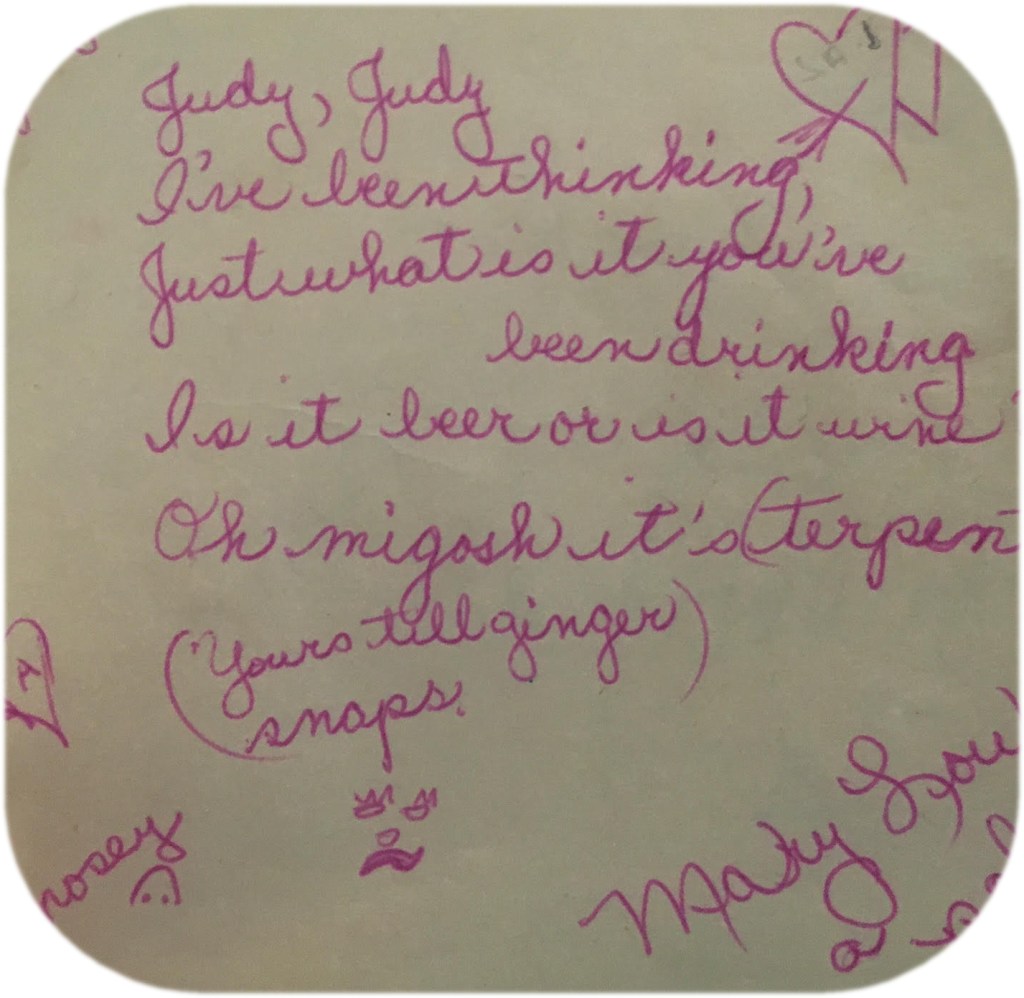 Judy, Judy
I've been thinking,
Just what is it you've
been drinking
Is it beer or is it wine
Oh migosh it's (terpen
(Yours till ginger)
snaps.
nosey
Mary Lou